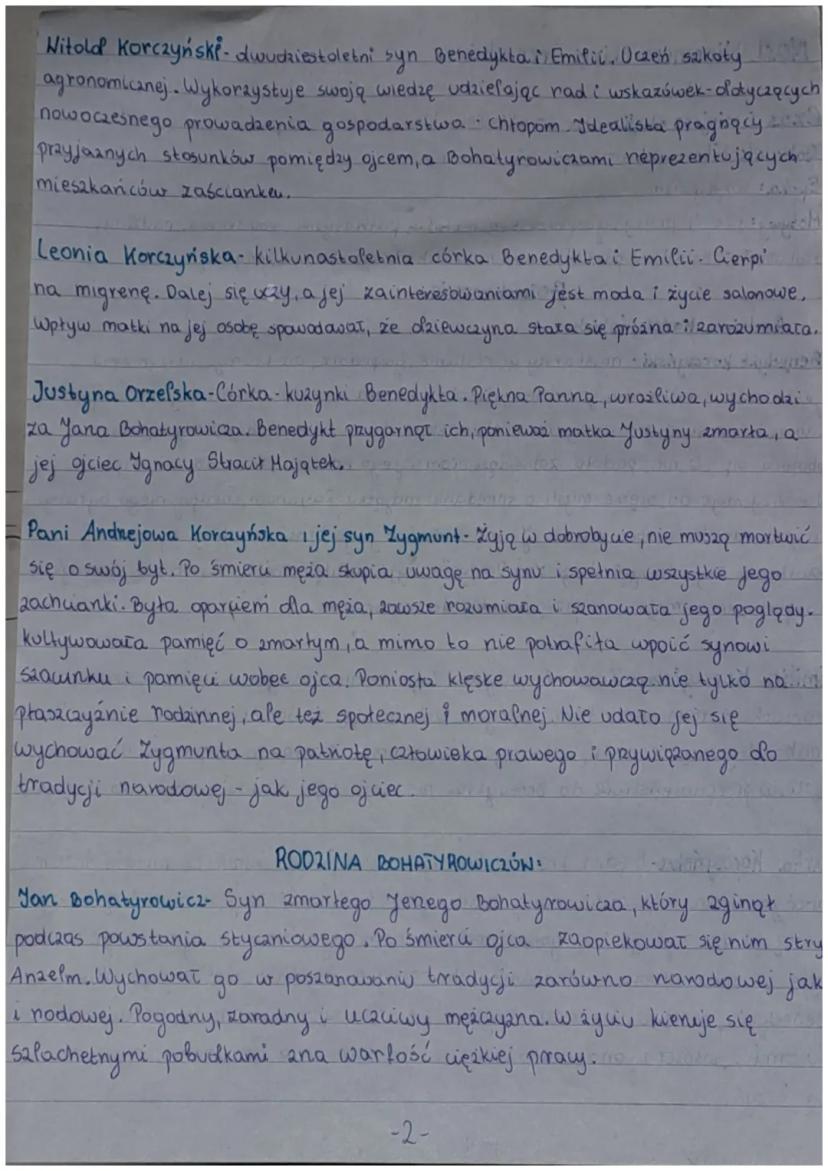 Witold Korczyński- dwudziestoletni syn Benedykta i Emilii. Uczeń szkoły
agronomicznej. Wykorzystuje swoją wiedzę udzielając rad i wskazówek-dotyczących
nowoczesnego prowadzenia gospodarstwa - chłopom. Idealista pragnący
przyjaznych stosunków pomiędzy ojcem, a Bohatyrowiczami reprezentujących
mieszkańców zaścianku.
Leonia Korczyńska- kilkunastoletnia córka Benedykta i Emilii. Cierpi
na migrenę. Dalej się uczy, a jej zainteresowaniami jest moda i życie salonowe.
Wpływ matki na jej osobę spowodował, że dziewczyna stała się próżna i zarozumiała.
Justyna Orzelska-Córka-kuzynki Benedykta. Piękna Panna, wrażliwa, wychodzi
za Jana Bohatyrowicza. Benedykt przygarnął ich, ponieważ matka Justyny zmarła, a
jej ojciec Ignacy Stracił Majątek.
Pani Andrzejowa Korczyńska i jej syn Zygmunt- Żyją w dobrobycie, nie muszą martwić
się o swój byt. Po śmierci męża skupia uwagę na synu i spełnia wszystkie jego
zachcianki. Była oparciem dla męża, zawsze rozumiała i szanowała jego poglądy.
Kultywowała pamięć o zmarłym, a mimo to nie potrafiła wpoić synowi
szacunku i pamięci wobec ojca. Poniosła klęskę wychowawczą nie tylko na
płaszczyźnie rodzinnej, ale też społecznej i moralnej. Nie udało jej się
wychować Zygmunta na patriotę, człowieka prawego i przywiązanego do
tradycji narodowej - jak jego ojciec.
RODZINA BOHATYROWICZÓW:
Jan Bohatyrowicz- Syn zmarłego Jerzego Bohatyrowicza, który zginął
podczas powstania styczniowego. Po śmierci ojca zaopiekował się nim stry
Anzelm. Wychował go w poszanowaniu tradycji zarówno narodowej jak
i rodowej. Pogodny, zaradny i uczciwy mężczyzna. W życiu kieruje się
szlachetnymi pobudkami zna wartość ciężkiej pracy.
-2-